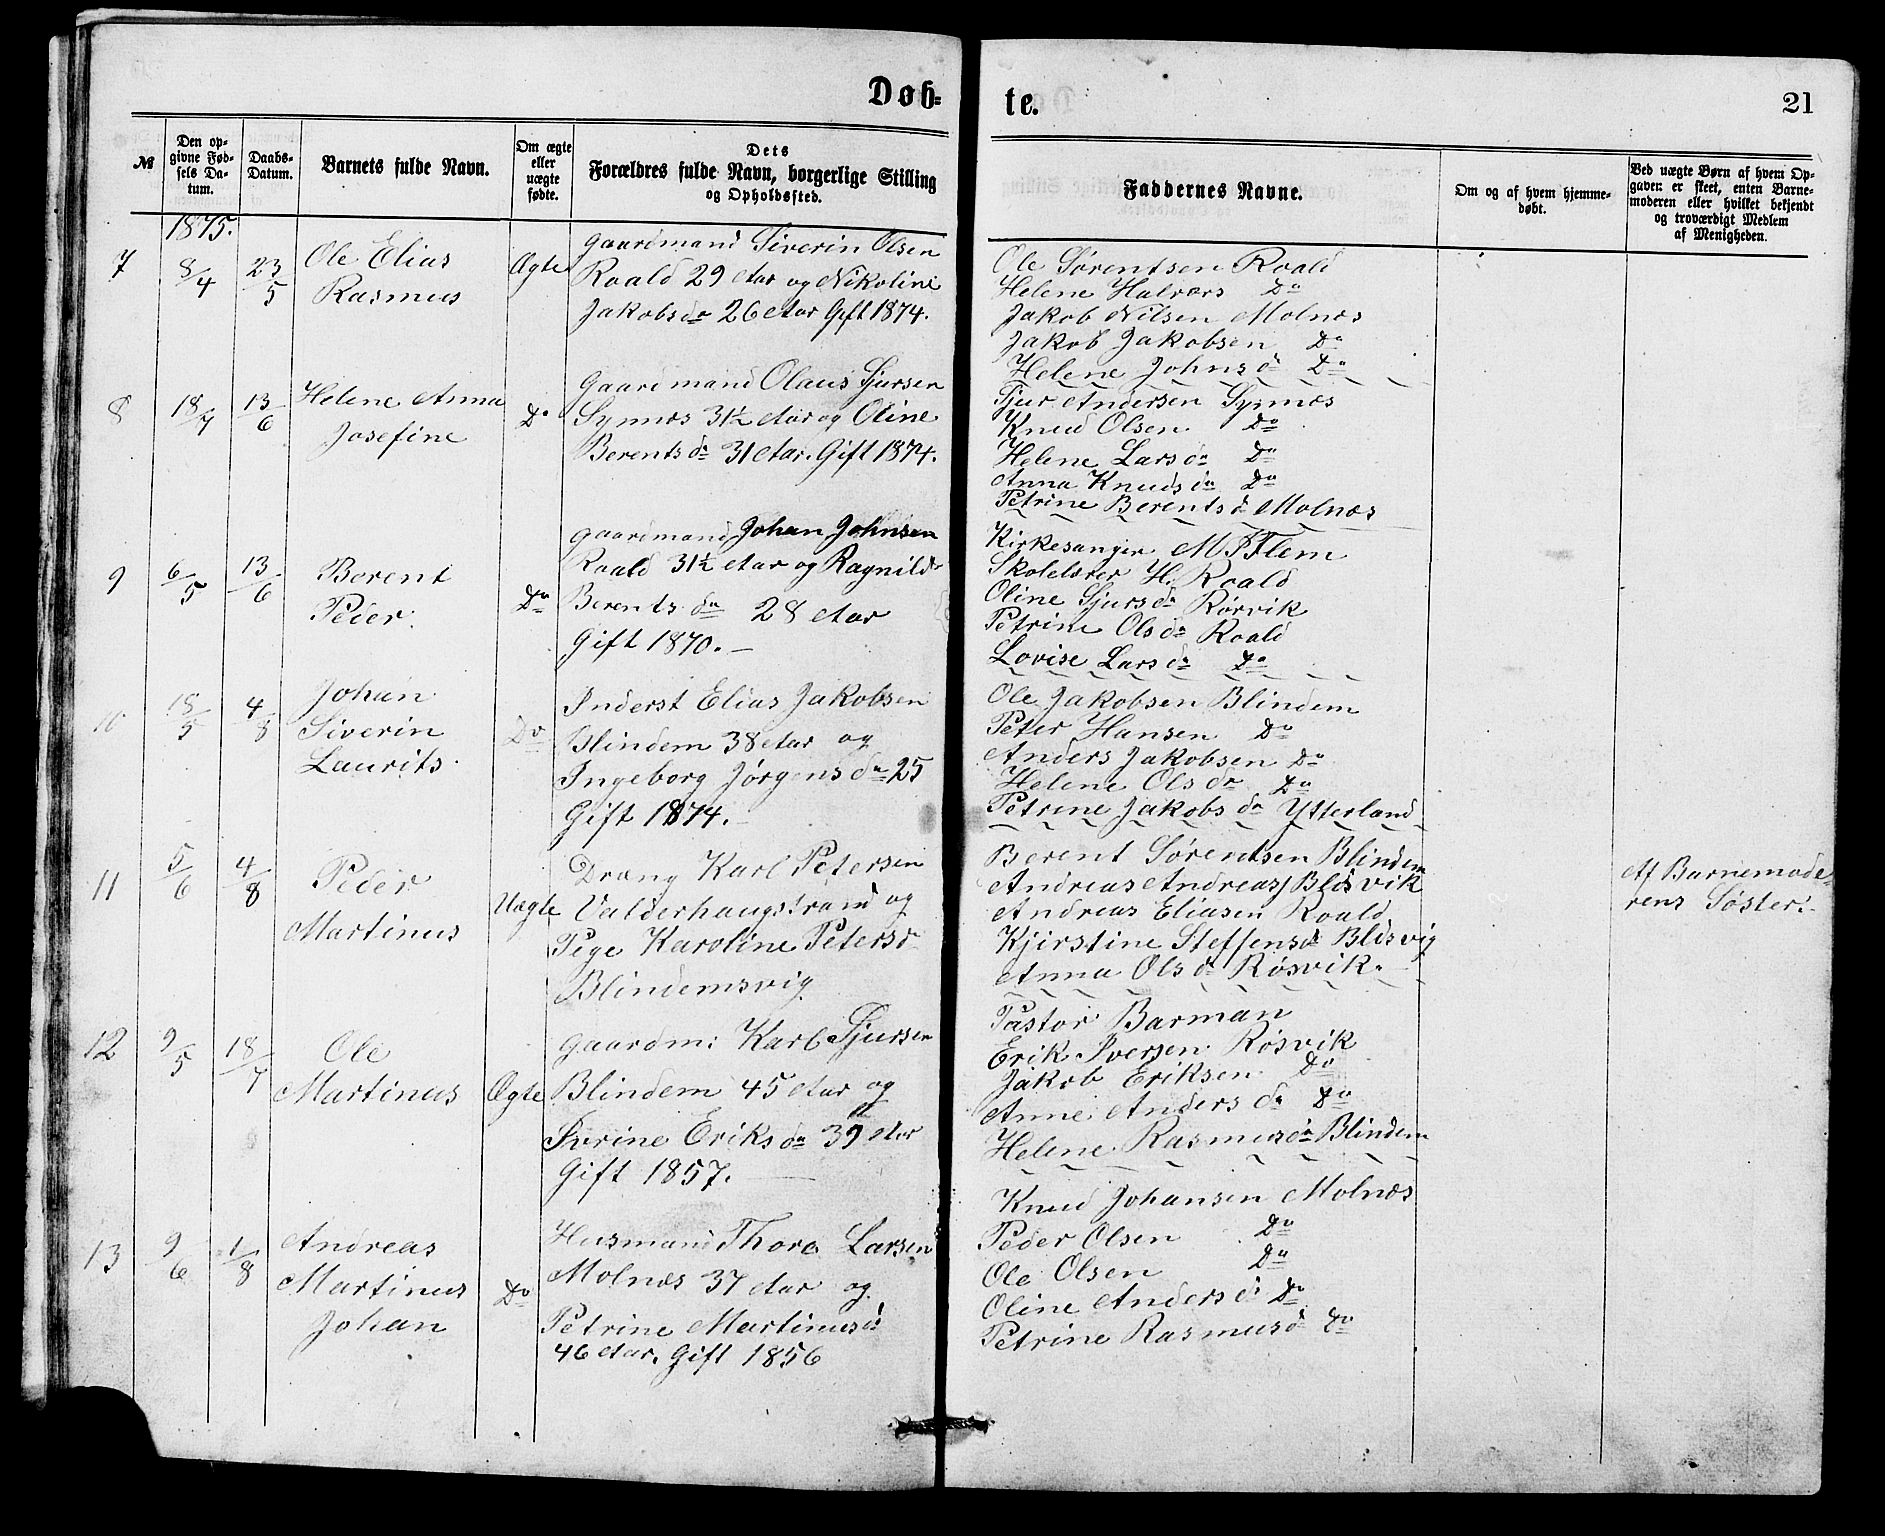 Døb=
te.
21
№
Den op-
givne Fød-
sels Da-
tum.
Daabs-
Datum.
Barnets fulde Navn.
Om ægte
eller
uægte
fødte.
Dets
Forældres fulde Navn, borgerlige Stilling
og Opholdssted.
Faddernes Navne.
Om og af hvem hjemme-
døbt.
Ved uægte Børn af hvem Op-
gaven er skeet, enten Barne-
moderen eller hvilket bekjendt
og troværdigt Medlem
af Menigheden.
1875.
7
8/4
23/5
Ole Elias
Rasmus
Ægte
Gaardmand Siverin Olsen
Roald 29 Aar og Nikoline
Jakobsdr 26 Aar Gift 1874.
Ole Sørentsen Roald
Helene Halvors Do
Jakob Nilsen Molnæs
Jakob Jakobsen Do
Helene Johnsd Do
8
18/4
13/6
Helene Anna
Josefine
Do
Gaardmand Olaus Sjursen
Synnæs 31½ Aar og Oline
Berentsdr 31 Aar. Gift 1874.
Sjur Andersen Synnæs
Knud Olsen Do
Helene Larsdr Do
Anna Knudsdr Do
Petrine Berentsd Molnæs
9
6/5
13/6
Berent
Peder.
Do
Gaardmand Johan Johnsen
Roald 31½ Aar og Ragnild
Berentsdr 28 Aar
Gift 1870.
Kirkesanger M P Flem
Skolelærer H. Roald
Oline Sjursdr Rørvik
Petrine Olsdr Roald
Lovise Larsdr Do
10
18/5
4/8
Johan
Siverin
Laurits
Do
Inderst Elias Jakobsen
Blindem 38 Aar og
Ingeborg Jørgensdr 25
Gift 1874.
Ole Jakobsen Blindem
Peter Hansen Do
Anders Jakobsen Do
Helene Olsdr Do
Petrine Jakobsdr Ytterland
11
5/6
4/8
Peder
Martinus
Uægte
Dræng Karl Petersen
Valderhaugstrand og
Pige Karoline Petersdr
Blindemsvig
Berent Sørentsen Blindem
Andreas Andreas) Bldsvik
Andreas Eliasen Roald
Kjirstine Steffensd Bldsvig
Anna Olsdr Røsvik.
Af Barnemode-
rens Søster.
12
9/5
18/7
Ole
Martinus
Ægte
Gaardm: Karl Sjursen
Blindem 45 Aar og
Ivrine Eriksdr 39 Aar
Gift 1857.
Pastor Barman
Erik Iversen Røsvik
Jakob Eriksen Do
Anne Andersdr Do
Helene Rasmusdr Blindem
13
9/6
1/8
Andreas
Martinus
Johan
Do
Husmand Thore Larsen
Molnæs 37 Aar og
Petrine Martinusd
46 Aar. Gift 1856
Knud Johansen Molnæs
Peder Olsen Do
Ole Olsen Do
Oline Andersd Do
Petrine Rasmusd Do